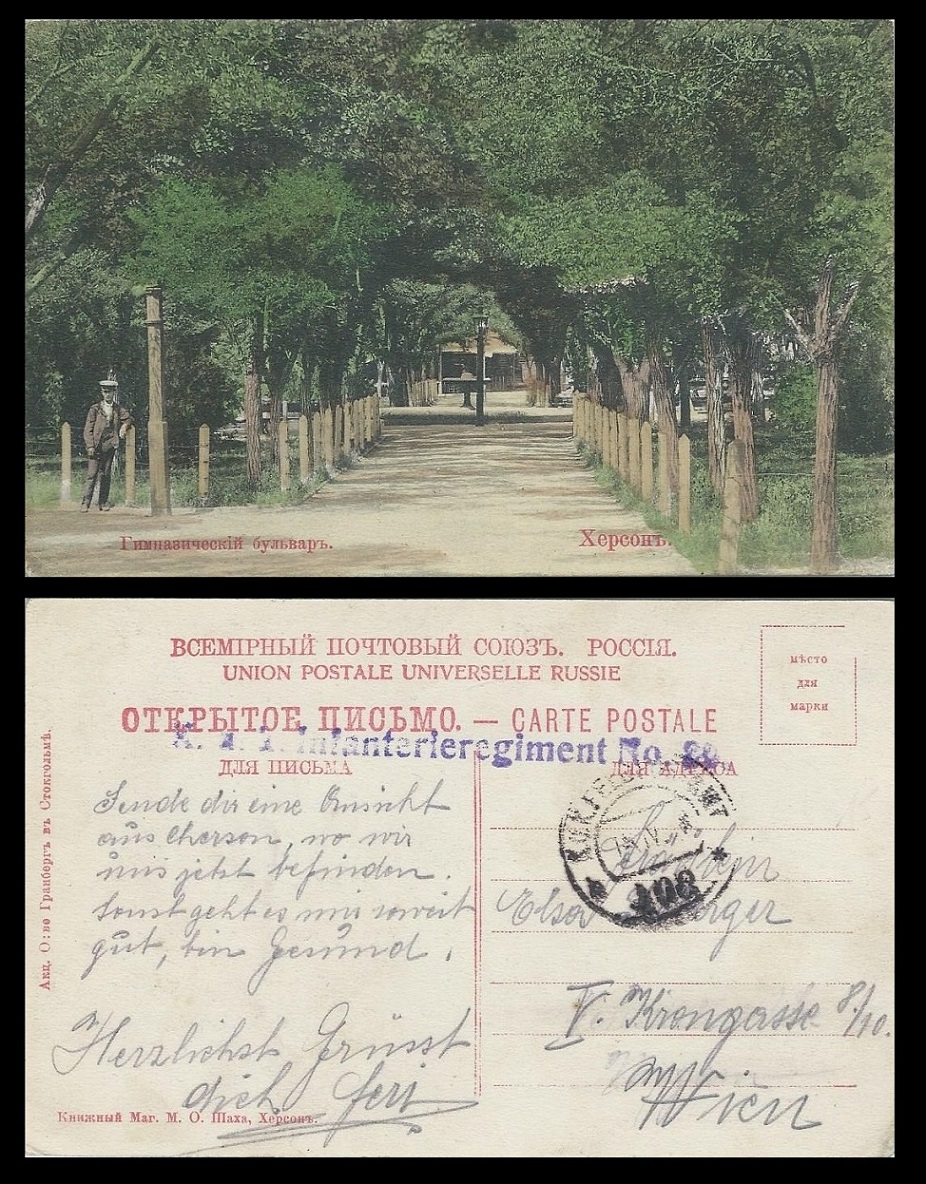 Гимназическій бульваръ.
Херсонъ.
ВСЕМІРНЫЙ ПОЧТОВЫЙ СОЮЗЪ. РОССІЯ.
UNION POSTALE UNIVERSELLE RUSSIE
мѣсто
для
марки
ОТКРЫТОЕ ПИСЬМО. — CARTE POSTALE
Infanterieregiment No.
ДЛЯ ПИСЬМА
ДЛЯ АДРЕСА
Sende dir eine Ansicht
aus Cherson, wo wir
uns jetzt befinden.
Sonst geht es mir soweit
gut, bin Gesund.
Herzlichst Grüsst
dich Feri
408
Fräulein
Elsa
V. Krongasse 8/10.
Wien
Акц. О:во Гранбергъ въ Стокгольмѣ.
Книжный Маг. М. О. Шаха, Херсонъ.